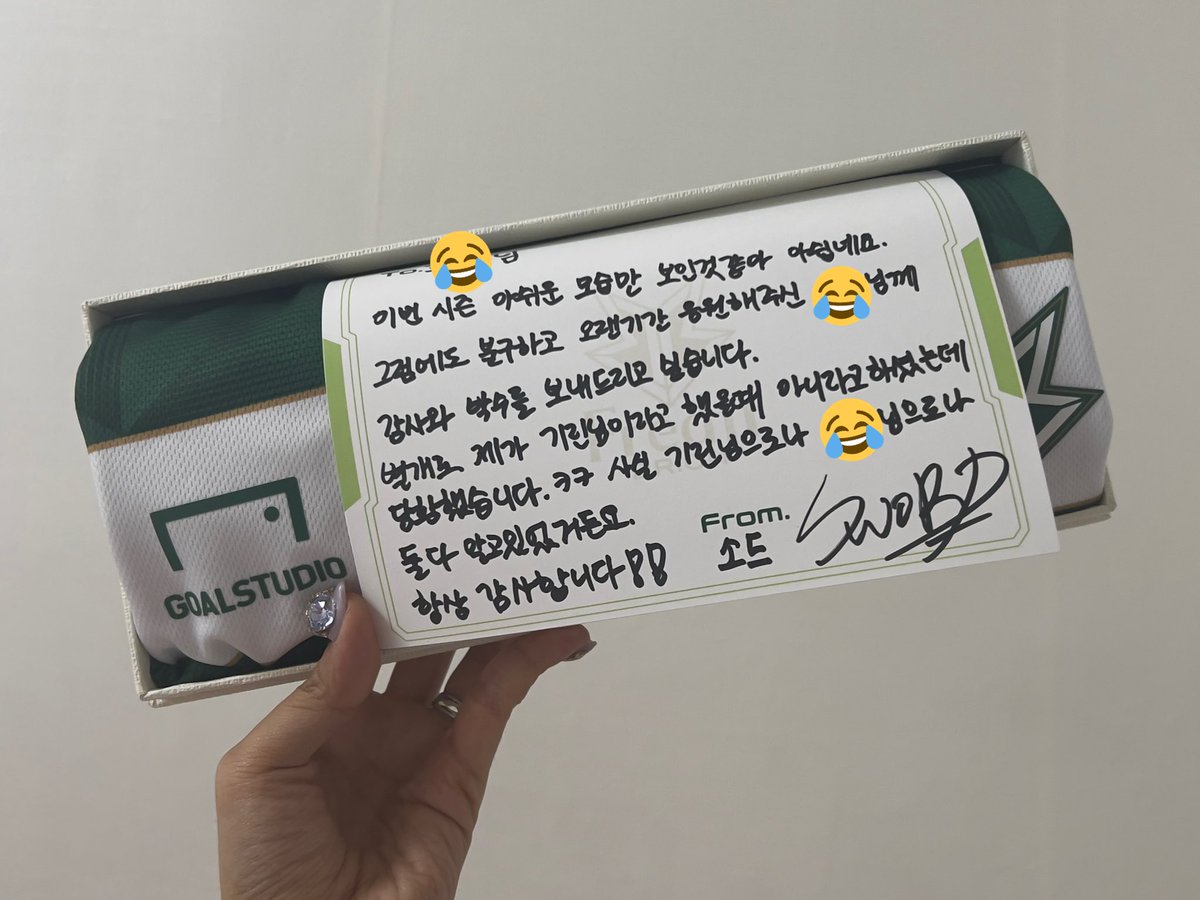 이번 시즌 아쉬운 모습만 보인것같아 아쉽네요.
그럼에도 불구하고 오랜기간 응원해주신 님께
감사와 박수를 보내드리고 싶습니다.
별개로 제가 기린님이라고 했을때 아니라고하셨는데
당황했습니다. ㅋㅋ 사실 기린님으로나 님으로나
둘다 알고있었거든요.
항상 감사합니다!!
From.
소드
SWORD
GOALSTUDIO